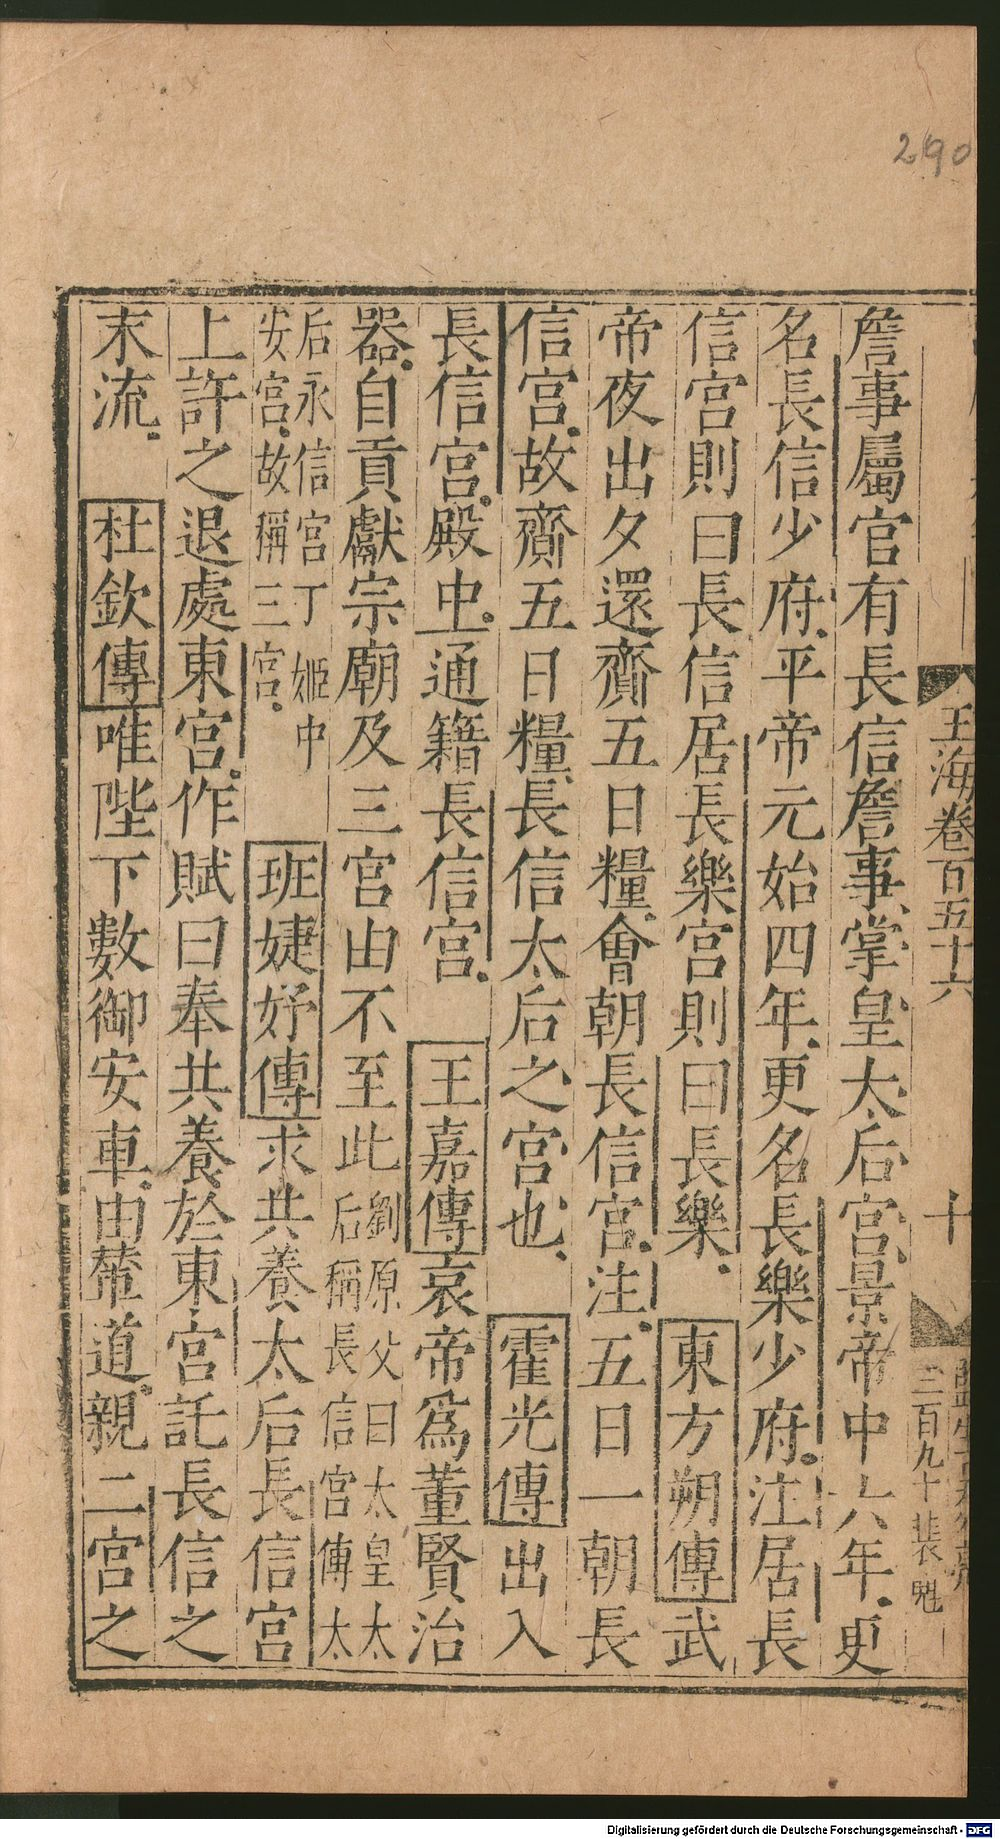 290
玉海卷百五十六
十
三百九十裴魁
詹事屬官有長信詹事掌皇太后宮景帝中六年更
名長信少府平帝元始四年更名長樂少府注居長
信宮則曰長信居長樂宮則曰長樂東方朔傳武
帝夜出夕還齎五日糧會朝長信宮注五日一朝長
信宮故齎五日糧長信太后之宮也霍光傳出入
長信宮殿中通籍長信宮王嘉傳哀帝為董賢治
器自貢獻宗廟及三宮由不至此劉原父曰太皇太
后稱長信宮傳太
后永信宮丁姬中
安宮故稱三宮班婕妤傳求共養太后長信宮
上許之退處東宮作賦曰奉共養於東宮託長信之
末流杜欽傳唯陛下數御安車由輦道親二宮之
Digitalisierung gefördert durch die Deutsche Forschungsgemeinschaft - DFG